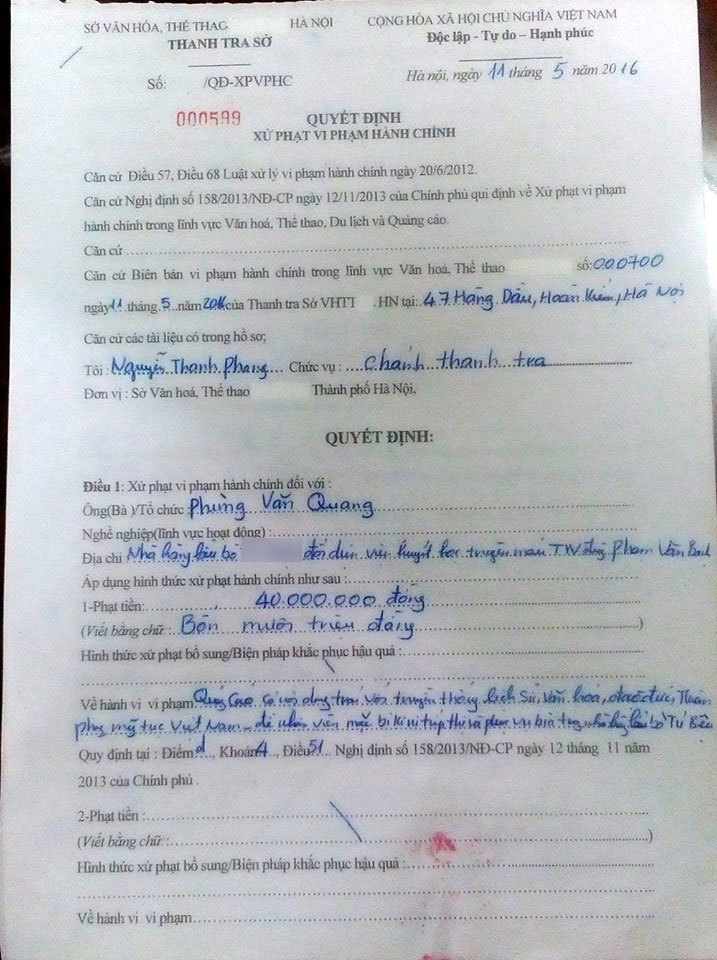 SỞ VĂN HÓA, THỂ THAO HÀ NỘI
THANH TRA SỞ
CỘNG HÒA XÃ HỘI CHỦ NGHĨA VIỆT NAM
Độc lập - Tự do – Hạnh phúc
Số: /QĐ-XPVPHC
Hà nội, ngày 11 tháng 5 năm 2016
000599
QUYẾT ĐỊNH
XỬ PHẠT VI PHẠM HÀNH CHÍNH
Căn cứ Điều 57, Điều 68 Luật xử lý vi phạm hành chính ngày 20/6/2012.
Căn cứ Nghị định số 158/2013/NĐ-CP ngày 12/11/2013 của Chính phủ qui định về Xử phạt vi phạm
hành chính trong lĩnh vực Văn hoá, Thể thao, Du lịch và Quảng cáo.
Căn cứ
Căn cứ Biên bản vi phạm hành chính trong lĩnh vực Văn hoá, Thể thao số:000700
ngày 11 tháng 5 năm 2016 của Thanh tra Sở VHTT . HN tại: 47 Hàng Dầu, Hoàn Kiếm, Hà Nội
Căn cứ các tài liệu có trong hồ sơ;
Tôi : Nguyễn Thanh Phang Chức vụ : Chánh thanh tra
Đơn vị : Sở Văn hoá, Thể thao Thành phố Hà Nội,
QUYẾT ĐỊNH:
Điều 1: Xử phạt vi phạm hành chính đối với :
Ông(Bà )/Tổ chức Phùng Văn Quang
Nghề nghiệp(lĩnh vực hoạt động) :
Địa chỉ Nhà hàng lẩu bò đối diện viện huyết học truyền máu TW đường Phạm Văn Bạch
Áp dụng hình thức xử phạt hành chính như sau :
1-Phạt tiền: 40.000.000 đồng
(Viết bằng chữ: Bốn mươi triệu đồng )
Hình thức xử phạt bổ sung/Biện pháp khắc phục hậu quả :
Về hành vi vi phạm Quảng Cáo có nội dung trái với truyền thống lịch Sử, Văn hoá, đạo đức, Thuần
phong mỹ tục Việt Nam để nhân viên mặc bikini tiếp thị và phục vụ bia tại nhà hàng lẩu bò Tư Béo
Quy định tại : Điểm d, Khoản 4, Điều 51 Nghị định số 158/2013/NĐ-CP ngày 12 tháng 11 năm
2013 của Chính phủ .
2-Phạt tiền :
(Viết bằng chữ : )
Hình thức xử phạt bổ sung/Biện pháp khắc phục hậu quả :
Về hành vi vi phạm